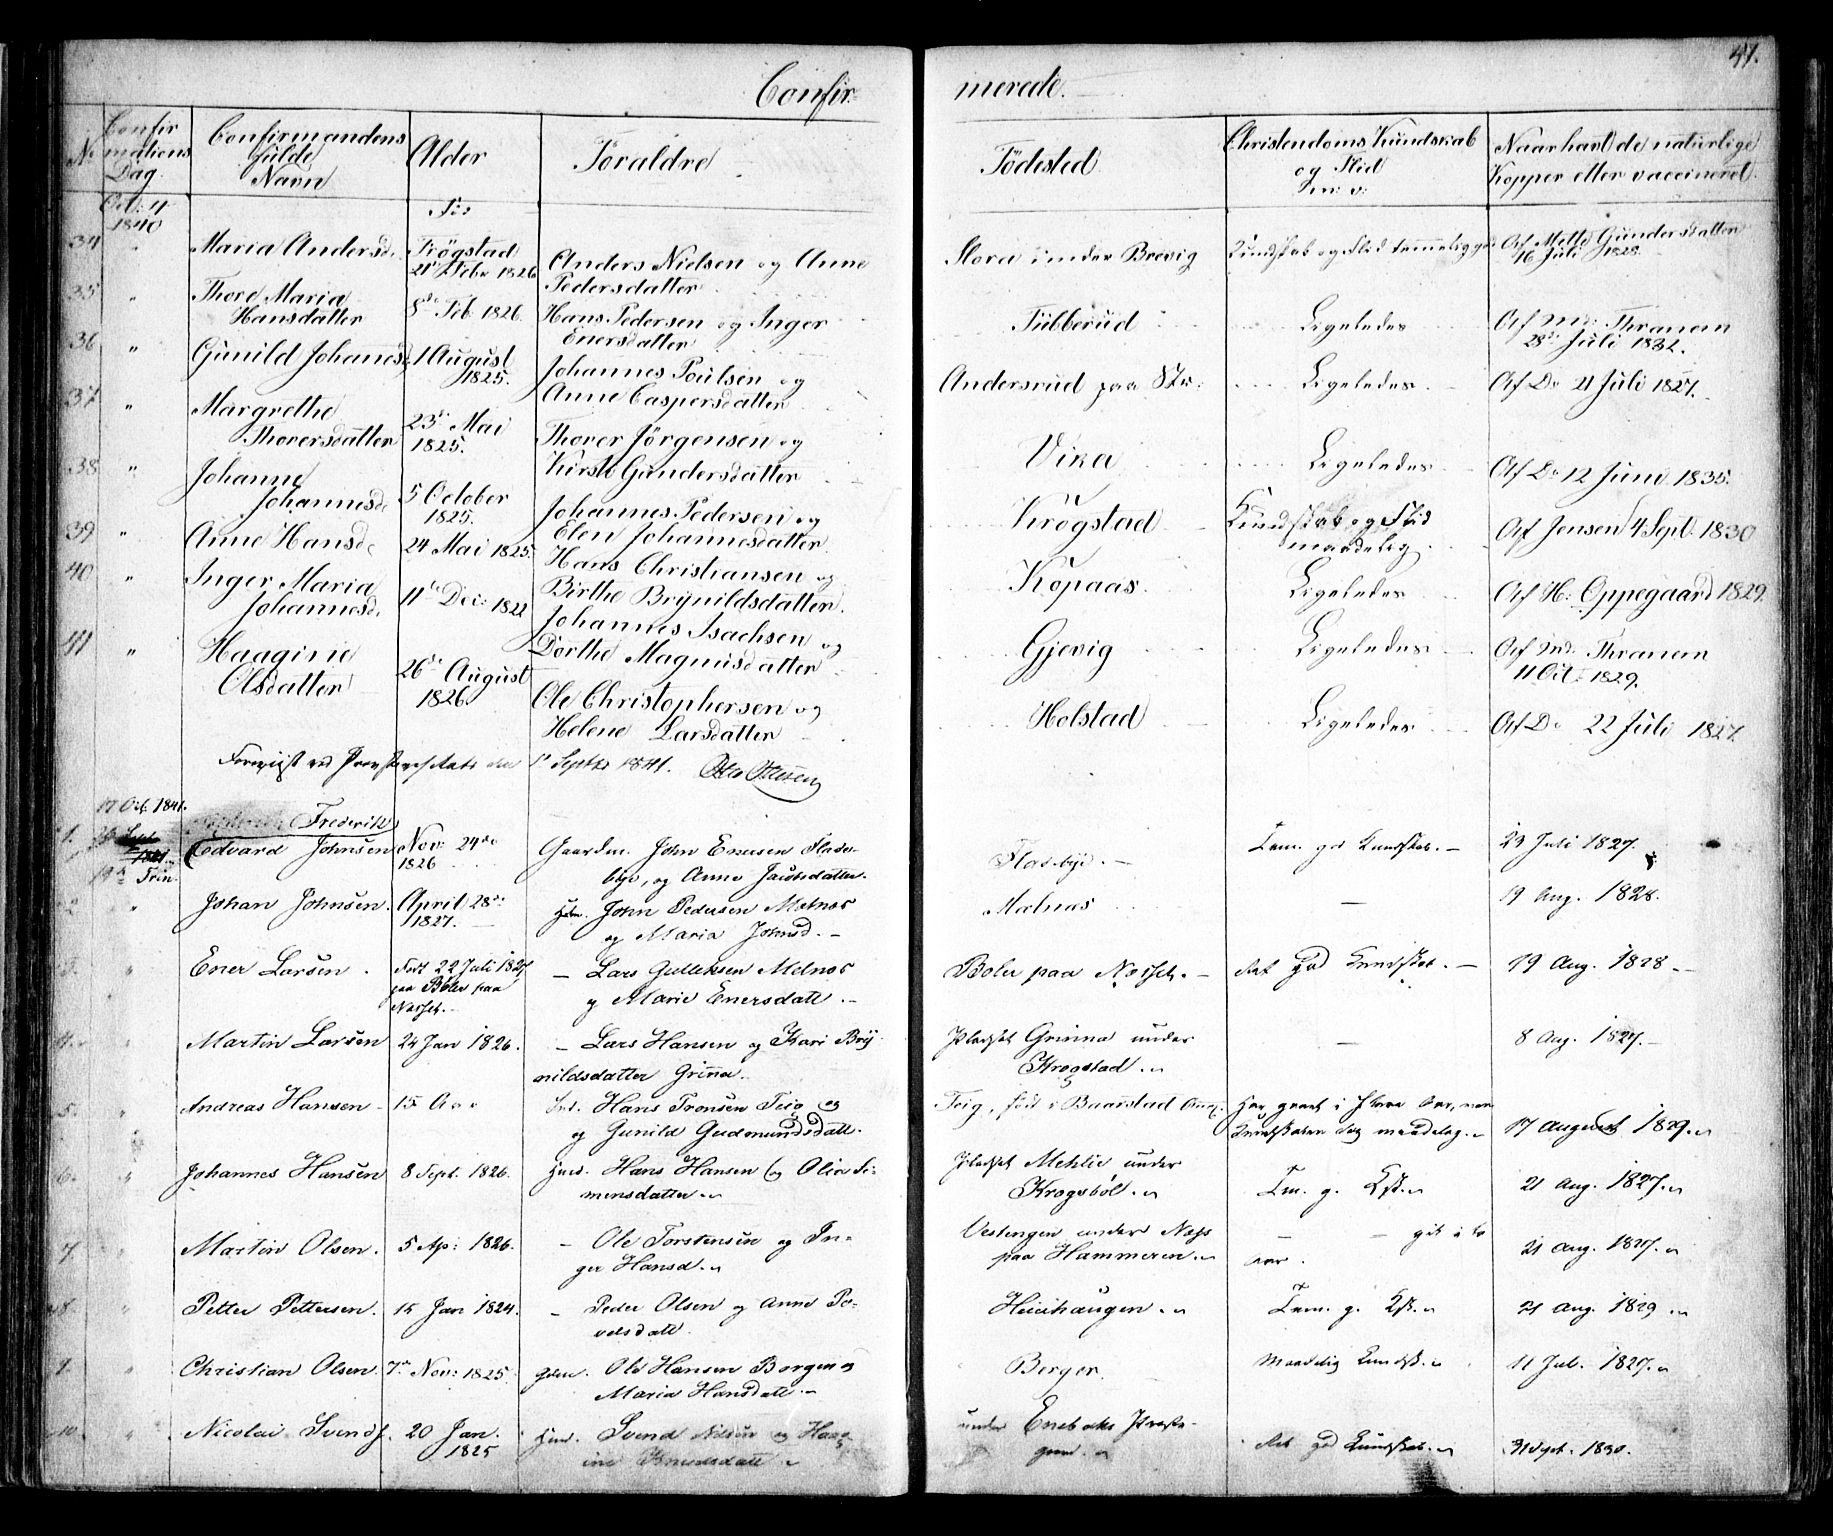 47.
Confir- merede.
No Confirmations Dag. Confirmandens fulde Navn Alder Forældre Födested Christendoms Kundskab og Flid m: v: Naar havt de naturlige Kopper eller vaccineret
Oct: 4 1840
34 " Maria Andersd. Krögstad 21 Febr 1826 Anders Nielsen og Anne Pedersdatter Stora under Brevig Kundskab og Flid temmelig gode Af Mette Gundersdatter 16 Juli 1828.
35 " Thore Maria Hansdatter 8de Feb 1826. Hans Pedersen og Inger Enersdatter Tubberud Ligeledes Af Md: Thranem 28de Juli 1832.
36 " Gunild Johannesd. 1 August 1825. Johannes Poulsen og Anne Caspersdatter Andersrud paa Str: Ligeledes Af Do 21 Juli 1827.
37 " Margrethe Thoversdatter 23de Mai 1825. Thover Jörgensen og Kirsti Gundersdatter Vika Ligeledes Af Do 12 Juni 1835.
38 " Johanne Johannesd. 5 October 1825. Johannes Pedersen og Elen Johannesdatter Krögstad Kundskab og Flid maadelig Af Jensen 4 Sept. 1830
39 " Anne Hansd. 24 Mai 1825. Hans Christiansen og Birthe Brynildsdatter. Kopaas Ligeledes Af H: Oppegaard 1829.
40 " Inger Maria Johannesd. 11te Dec: 1822 Johannes Isachsen og Dorthe Magnusdatter Gjevig Ligeledes Af Md: Thranem 11 Oct: 1829.
41 " Haagine Olsdatter 26de August 1826. Ole Christophersen og Helene Larsdatter Holstad Ligeledes Af Do 22 Juli 1827.
Septbr 1841. Otto Ottesen
17 Oct. 1841.
19de Trin.
1. Frederik Edvard Johnsen Nov: 24de 1826 Gaardm. John Enersen Fladebye, og Anne Jacobsdatter. Fladebye. Tem. god Kundskab. 23 Juli 1827.
2 " Johan Johnsen. April 28de 1827. Huusm. John Pedersen Melnæs og Maria Johnsd. Melnæs — 19 Aug. 1828.
3. " Ener Larsen. Født 22 Juli 1827 paa Boler paa Næsset. — Lars Gulleksen Melnæs og Marie Enersdatt. Boler paa Næsset. Ret god Kundskab. 19 Aug. 1828.
4. " Martin Larsen 24 Jan 1826. — Lars Hansen og Kari Brynildsdatter Grinna. Pladset Grinna under Krogstad. — 8 Aug. 1827.
5. " Andreas Hansen 15 Hans Tronsen Teig og Gunild Gudmundsdatt. Teig, født i Baastad Kundskaben dog maadelig. 17 August 1829.
6. " Johannes Hansen 8 Sept. 1826. Huusm. Hans Hansen og Olia Simensdatter. Pladset Mehlie under Krogsböl. Tem. g. Kst. 21 Aug. 1827.
7 " Martin Olsen. 5 Ap: 1826. — Ole Torstensen og Inger Hansd. Vestengen under Næs paa Hammeren. 21 Aug. 1827.
8. " Petter Pettersen. 15 Jan 1824. — Peder Olsen og Anne Povelsdatt. Heiahaugen. Tem. g. Kst. 21 Aug. 1829
9. " Christian Olsen. 7de Nov: 1825. Gdm. Ole Hansen Borgen og Maria Hansdatt. Berger. Maadelig Kundsk. 11 Jul. 1827.
10. " Nicolai Svends. 20 Jan. 1825 Huusm. Svend Nilsen og Haagine Knudsdatt. under Enebaks Præstegaard. Ret god Kundskab. 3 Sept. 1830.